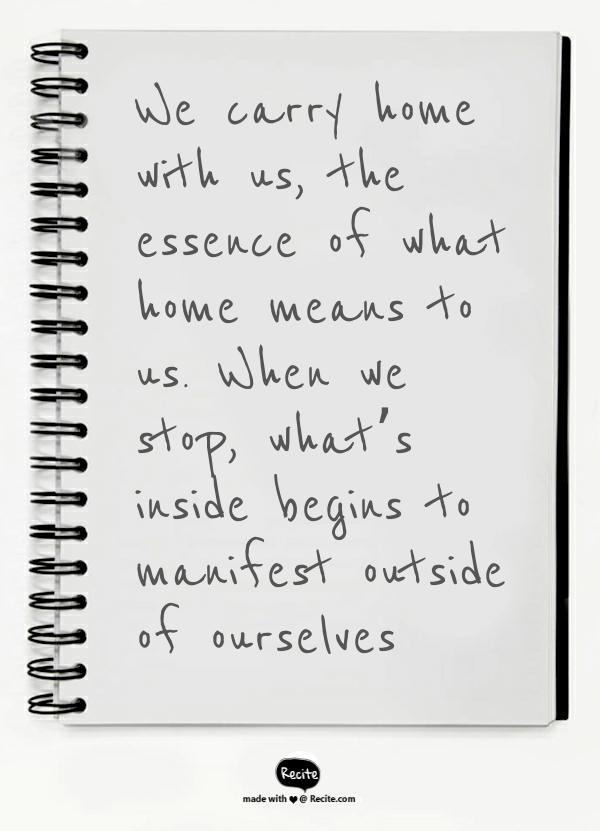 We carry home
with us, the
essence of what
home means to
us. When we
stop, what's
inside begins to
manifest outside
of ourselves
Recite
made with ♥ @ Recite.com